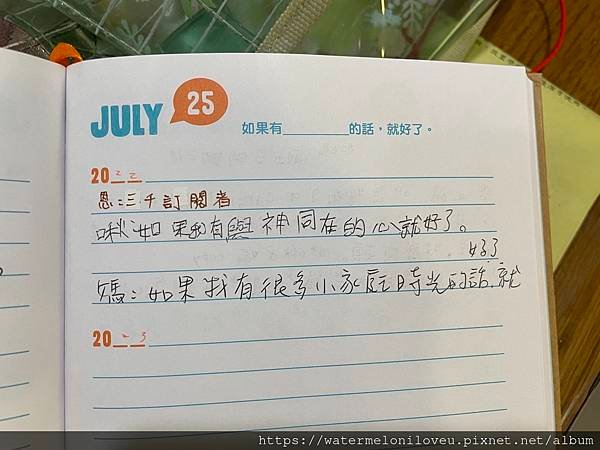 JULY 25
如果有________的話，就好了。
20二二
恩：三千訂閱者
啾：如果我有與神同在的心就好了。
媽：如果我有很多小家庭時光的話，就
好了
20二3
https://watermeloniloveu.pixnet.net/album